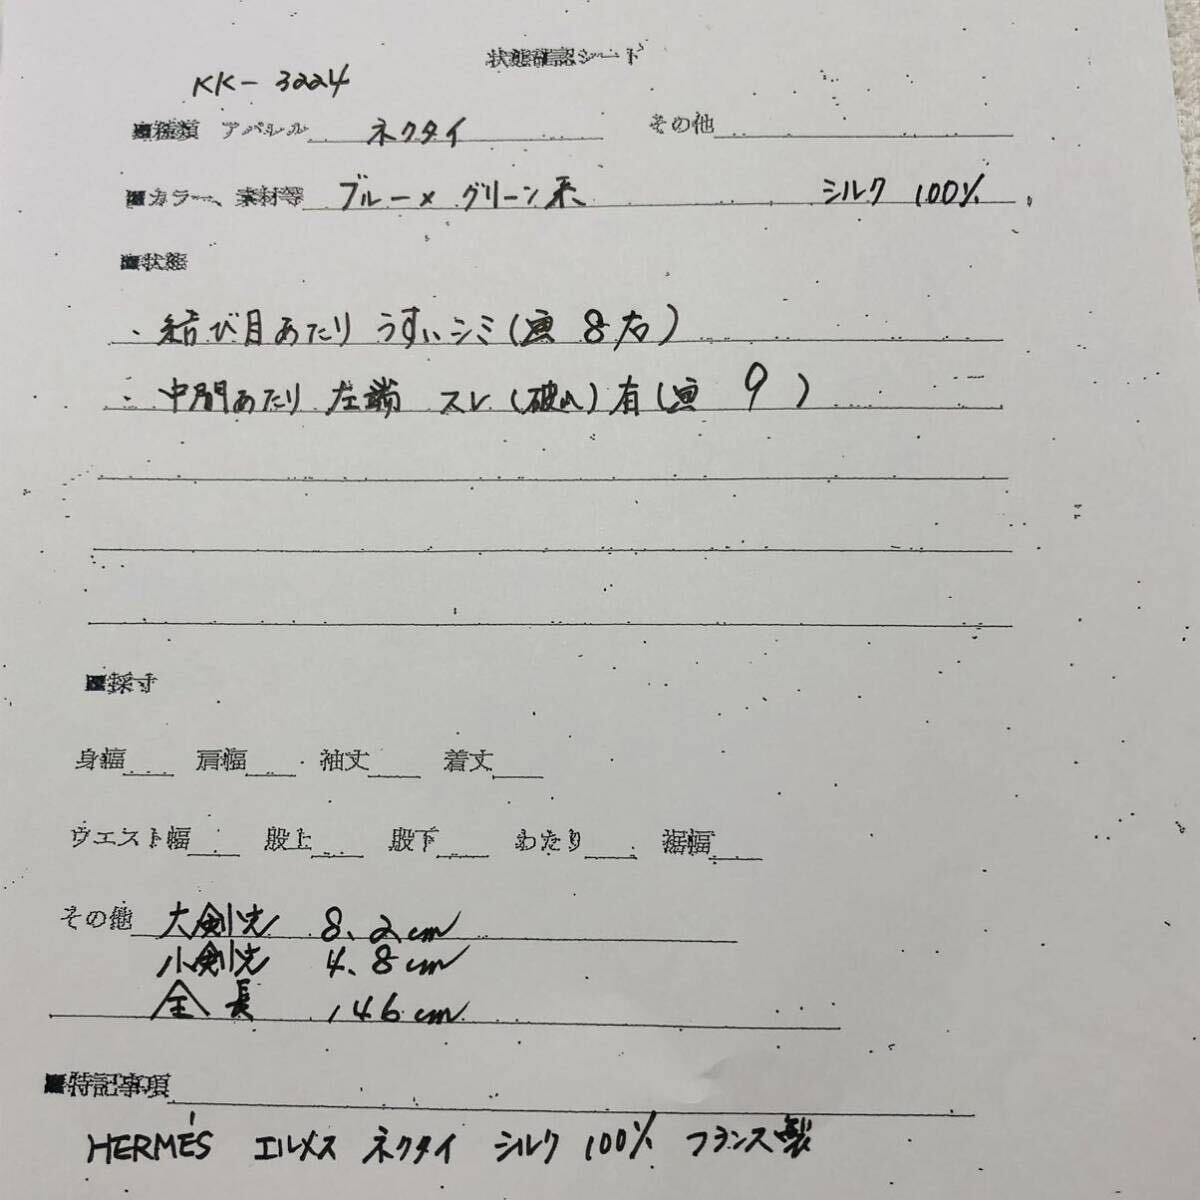 状態確認シート
KK-3224
■種類 アパレル ネクタイ その他
■カラー、素材等 ブルー×グリーン系 シルク 100%
■状態
・結び目あたり うすいシミ(画 8右)
・中間あたり 左端 スレ(破れ)有(画 9)
■採寸
身幅 肩幅 袖丈 着丈
ウエスト幅 股上 股下 わたり 裾幅
その他 大剣先 8.2cm
小剣先 4.8cm
全長 146cm
■特記事項
HERMÉS エルメス ネクタイ シルク 100% フランス製